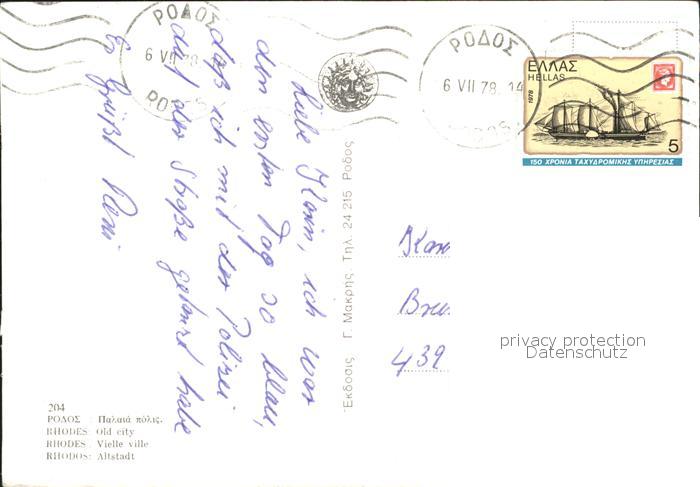 Liebe Karin, ich war
den ersten Tag so blau,
daß ich mit der Polizei
auf der Straße getanzt habe
Es grüßt
ΡΟΔΟΣ
6 VII 78
ΡΟΔΟΣ
6 VII 78. 14
ΕΛΛΑΣ
HELLAS
1978
5
150 ΧΡΟΝΙΑ ΤΑΧΥΔΡΟΜΙΚΗΣ ΥΠΗΡΕΣΙΑΣ
Ἐκδοσις Γ. Μακρης Τηλ. 24 215 Ροδος
439
privacy protection
Datenschutz
204
ΡΟΔΟΣ : Παλαιά πόλις.
RHODES: Old city
RHODES: Vielle ville
RHODOS: Altstadt